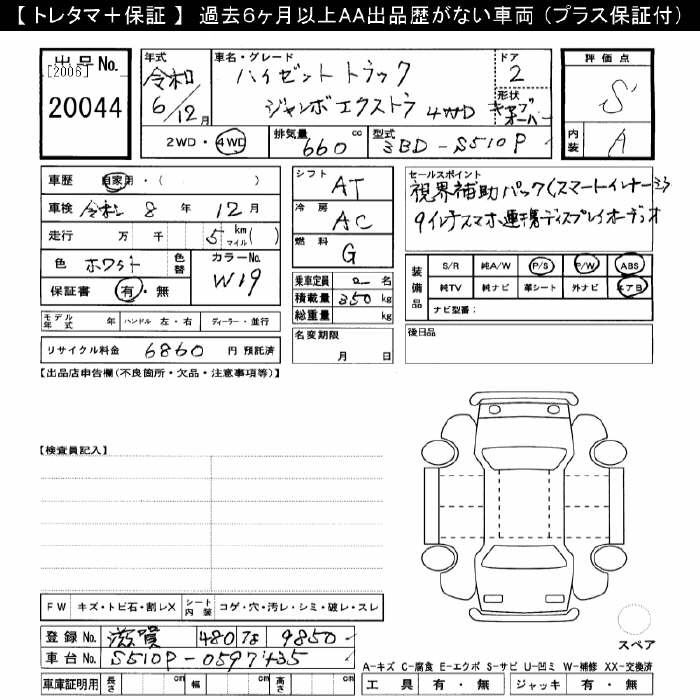 【 トレタマ＋保証 】 過去6ヶ月以上AA出品歴がない車両（プラス保証付）
出品No.
[2006]
20044
年式
令和
6/12月
車名・グレード
ハイゼット トラック
ジャンボエクストラ 4WD
ドア
2
形状
キャブオーバー
評価点
S
内装
A
2WD・4WD
排気量
660 cc
型式
3BD-S510P
車歴 自家用・( )
車検 令和 8 年 12 月
走行 万 千 5 km マイル( )
色 ホワイト 色替
カラーNo. W19
保証書 有・無
シフト AT
冷房 AC
燃料 G
乗車定員 2 名
積載量 350 kg
総重量 kg
セールスポイント
視界補助パック(スマートインナーミラー
9インチスマホ連携ディスプレイオーディオ
装備品
S/R 純A/W P/S P/W ABS
純TV 純ナビ 革シート 外ナビ エアB
ナビ型番:
モデル年式 年 ハンドル 左・右 ディーラー・並行
名変期限
月 日
後日品
リサイクル料金 6860 円 預託済
【出品店申告欄(不良箇所・欠品・注意事項等)】
【検査員記入】
FW キズ・トビ石・割レX シート内装 コゲ・穴・汚レ・シミ・破レ・スレ
登録No. 滋賀 480 な 9850
車台No. S510P-0597435
スペア
A-キズ C-腐食 E-エクボ S-サビ U-凹ミ W-補修 XX-交換済
車庫証明用 長さ cm 幅 cm 高さ cm
工具 有・無 ジャッキ 有・無